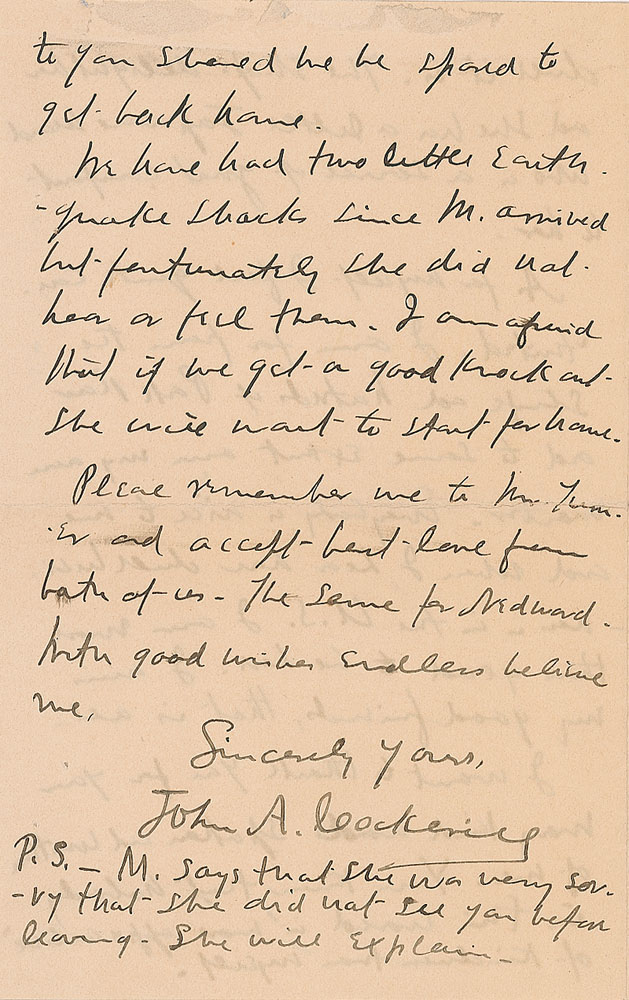 to you should we be spared to
get back home.
We have had two little Earth-
-quake shocks since M. arrived
but fortunately she did not
hear or feel them. I am afraid
that if we get a good knock out
she will want to start for home.
Please remember me to Mr. Turn-
-er and accept best love from
both of us - The same for Nedward.
With good wishes endless believe
me,
Sincerely Yours,
John A. Cockerill
P.S. - M. says that she was very sor-
-ry that she did not see you before
leaving - She will explain -